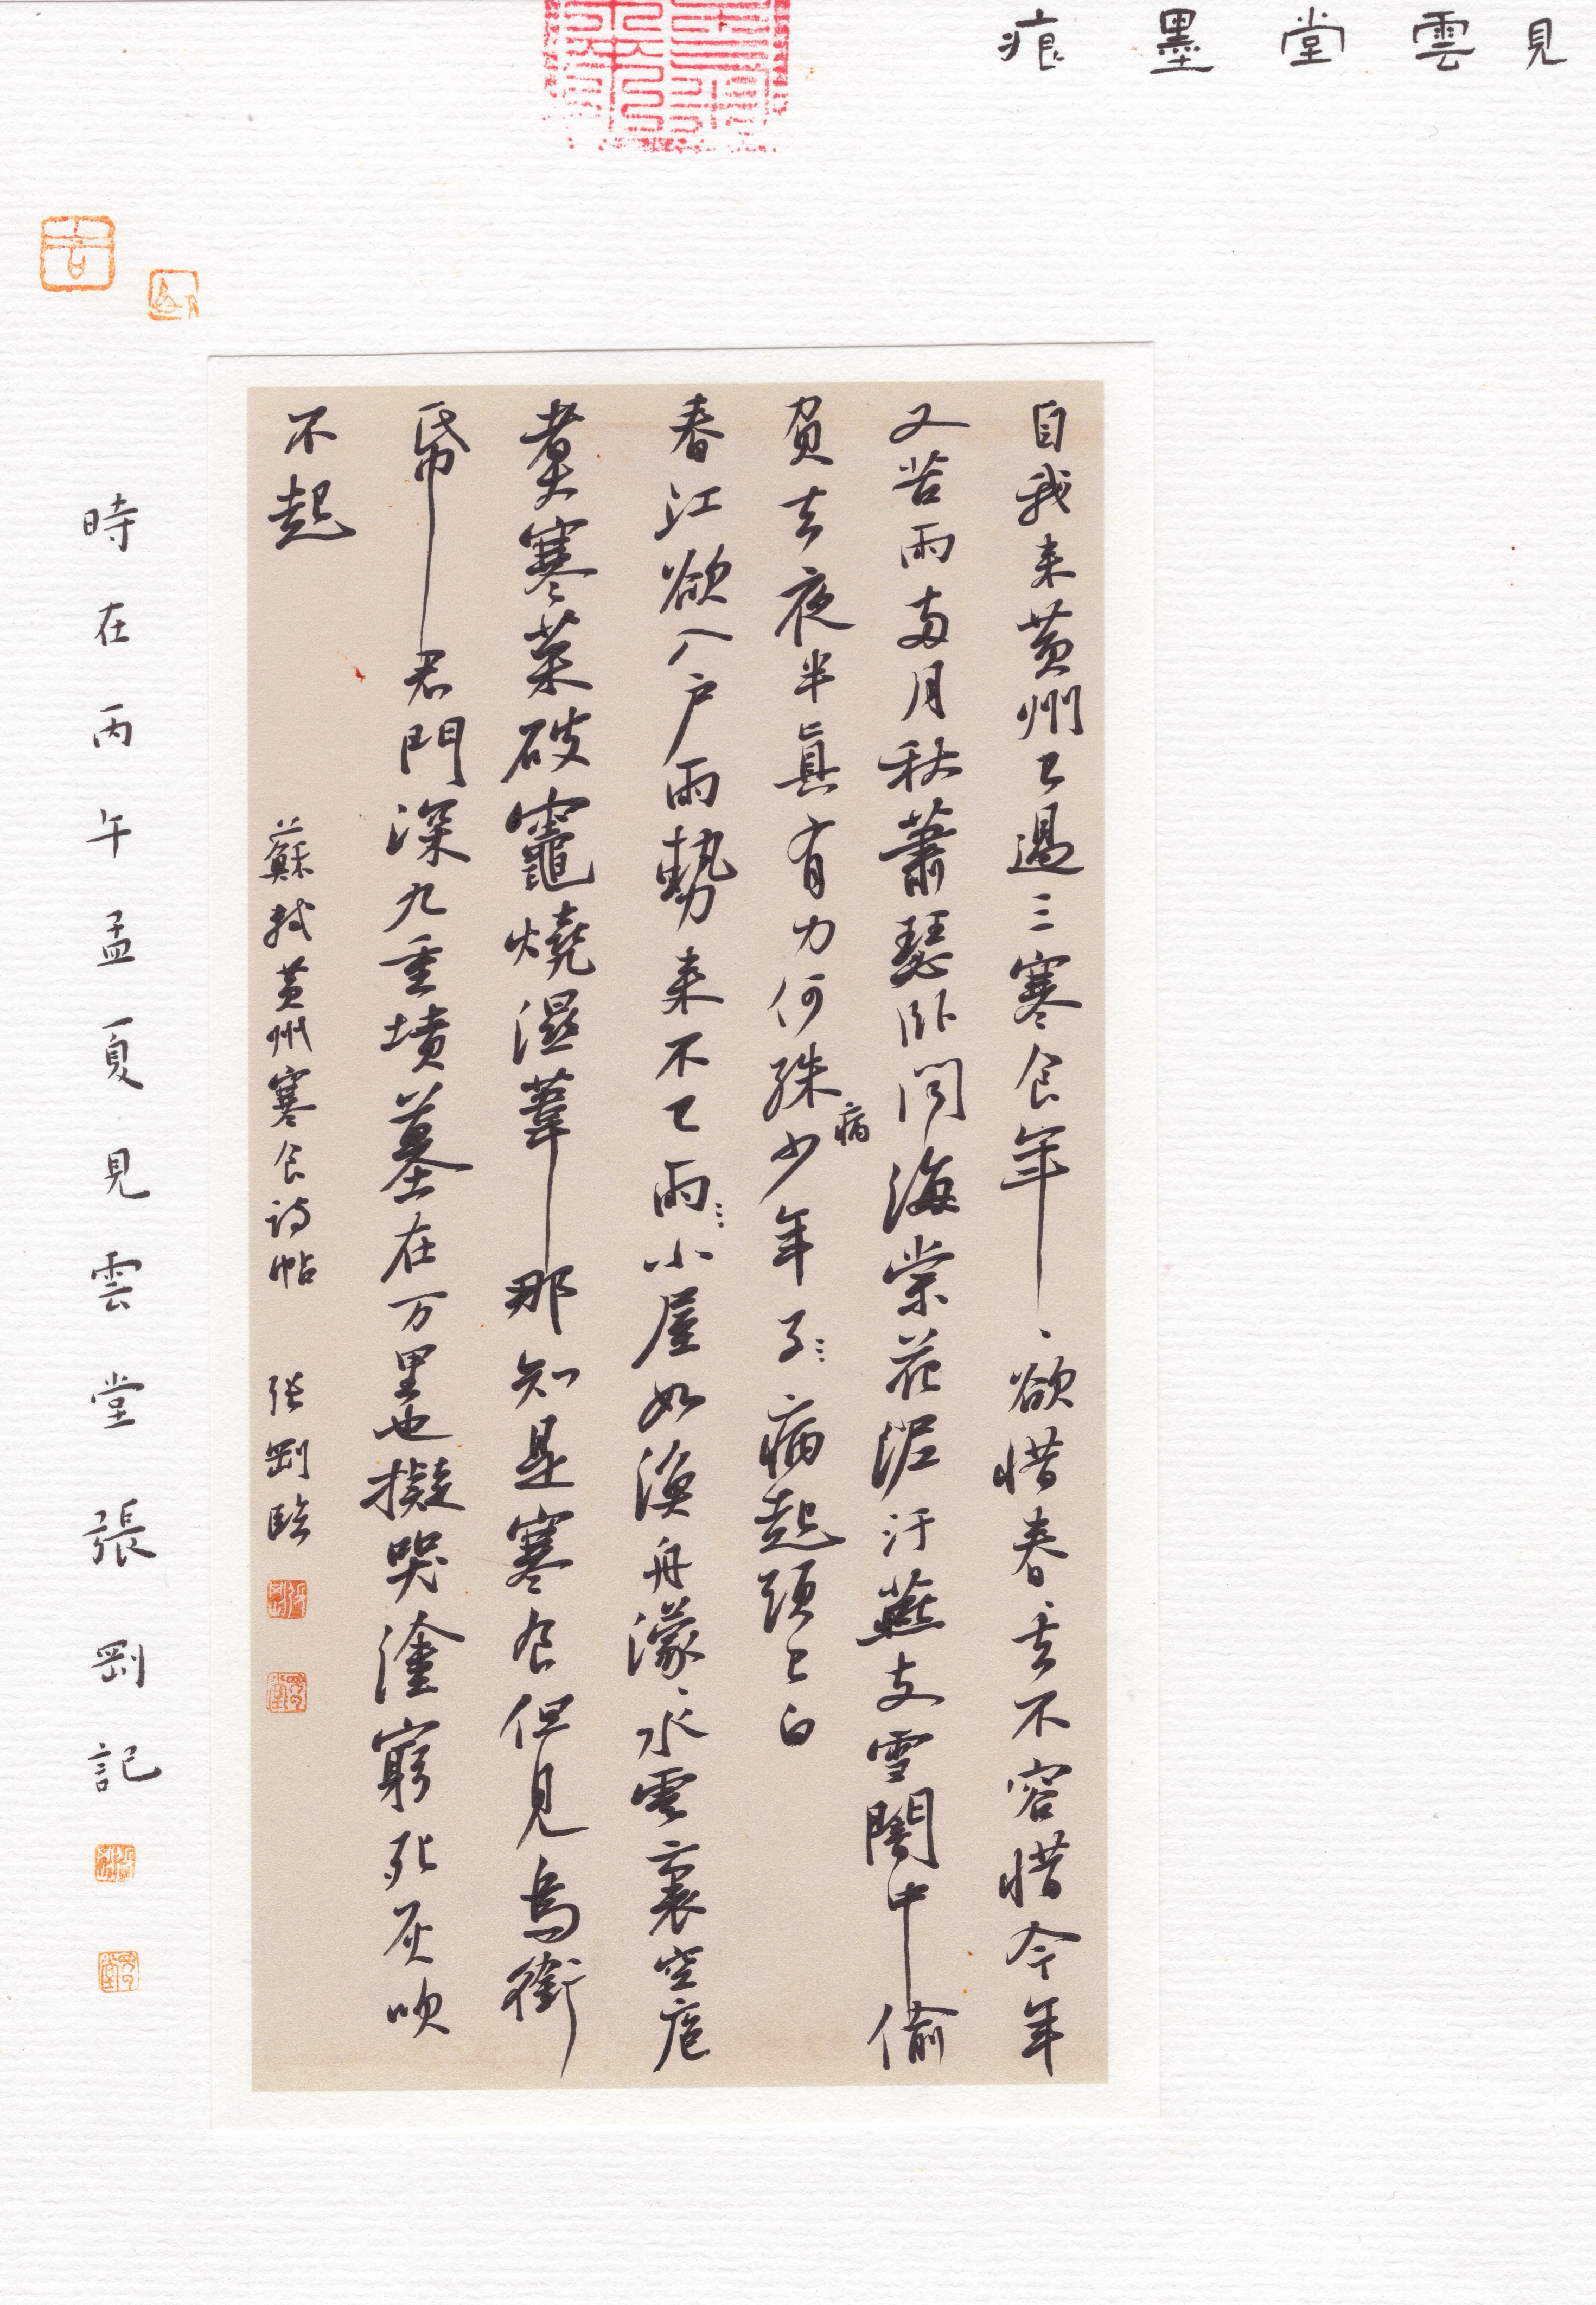 見雲堂墨痕
自我来黄州已過三寒食年、欲惜春去不容惜今年
又苦雨兩月秋蕭瑟卧聞海棠花泥汙燕支雪闇中偷
負去夜半真有力何殊少年子病起頭已白
病
春江欲入户雨勢来不已雨小屋如漁舟濛、水雲裏空庖
煑寒菜破竈燒濕葦那知是寒食但見烏銜
帋君門深九重墳墓在万里也擬哭塗窮死灰吹
不起
蘇軾黄州寒食詩帖 張剛臨
時在丙午孟夏見雲堂張剛記